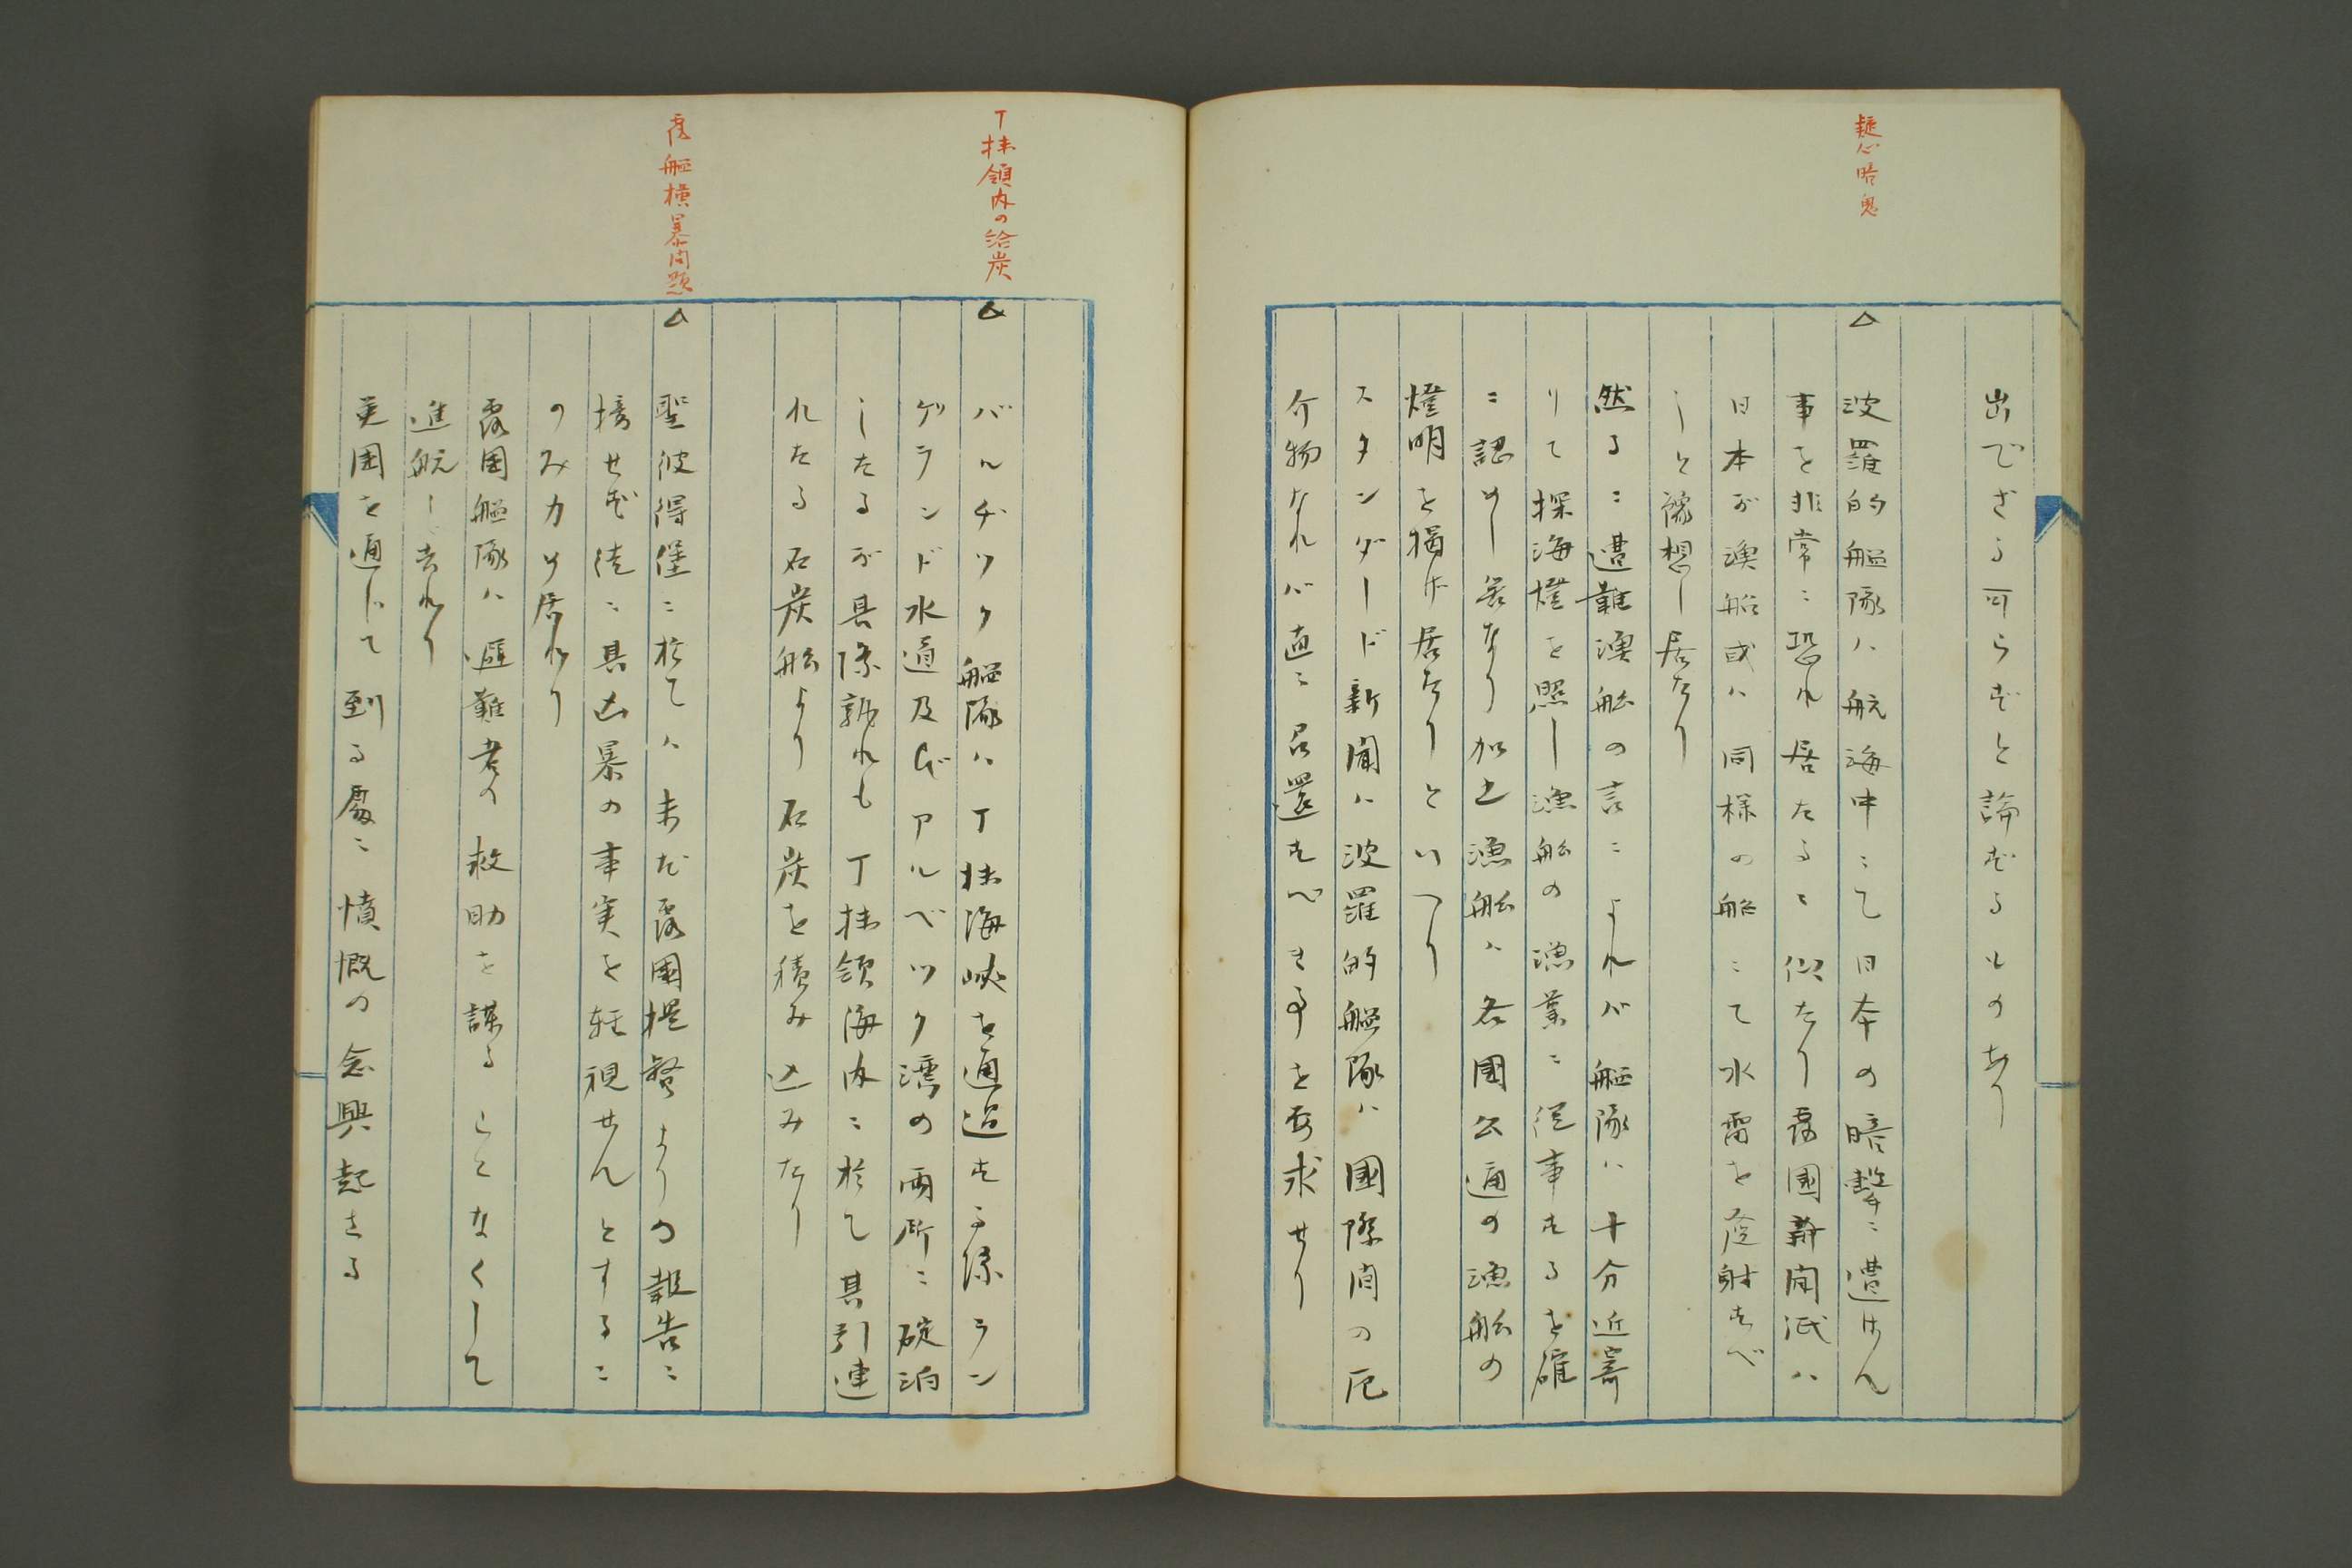 出でざる可らずと論ずるものあり
疑心暗鬼
△
波羅的艦隊ハ航海中ニて日本の暗撃ニ遭はん
事を非常ニ恐れ居たるニ似たり露國新聞紙ハ
日本が漁船或ハ同様の船ニて水雷を発射すべ
しと豫想し居たり
然るニ遭難漁船の言ニよれバ艦隊ハ十分近寄
りて探海燈を照し漁船の漁業ニ従事するを確
ニ認めし筈なり加之漁船ハ各國公通の漁船の
燈明を掲げ居たりといへり
スタンダード新聞ハ波羅的艦隊ハ國際間の厄
介物なれバ直ニ召還すべき事を要求せり
丁抹領内の給炭
△
バルチック艦隊ハ丁抹海峡を通過する際ラン
ゲランド水道及びアルベック湾の両所ニ碇泊
したるが其際孰れも丁抹領海内ニ於て其引連
れたる石炭船より石炭を積み込みたり
露艦横暴問題
△
聖彼得堡ニ於てハ未だ露國提督よりの報告ニ
接せず徒ニ其凶暴の事実を軽視せんとするニ
のみ力め居れり
露国艦隊ハ遭難者の救助を謀ることなくして
進航し去れり
英国を通じて到る處ニ憤慨の念興起せる